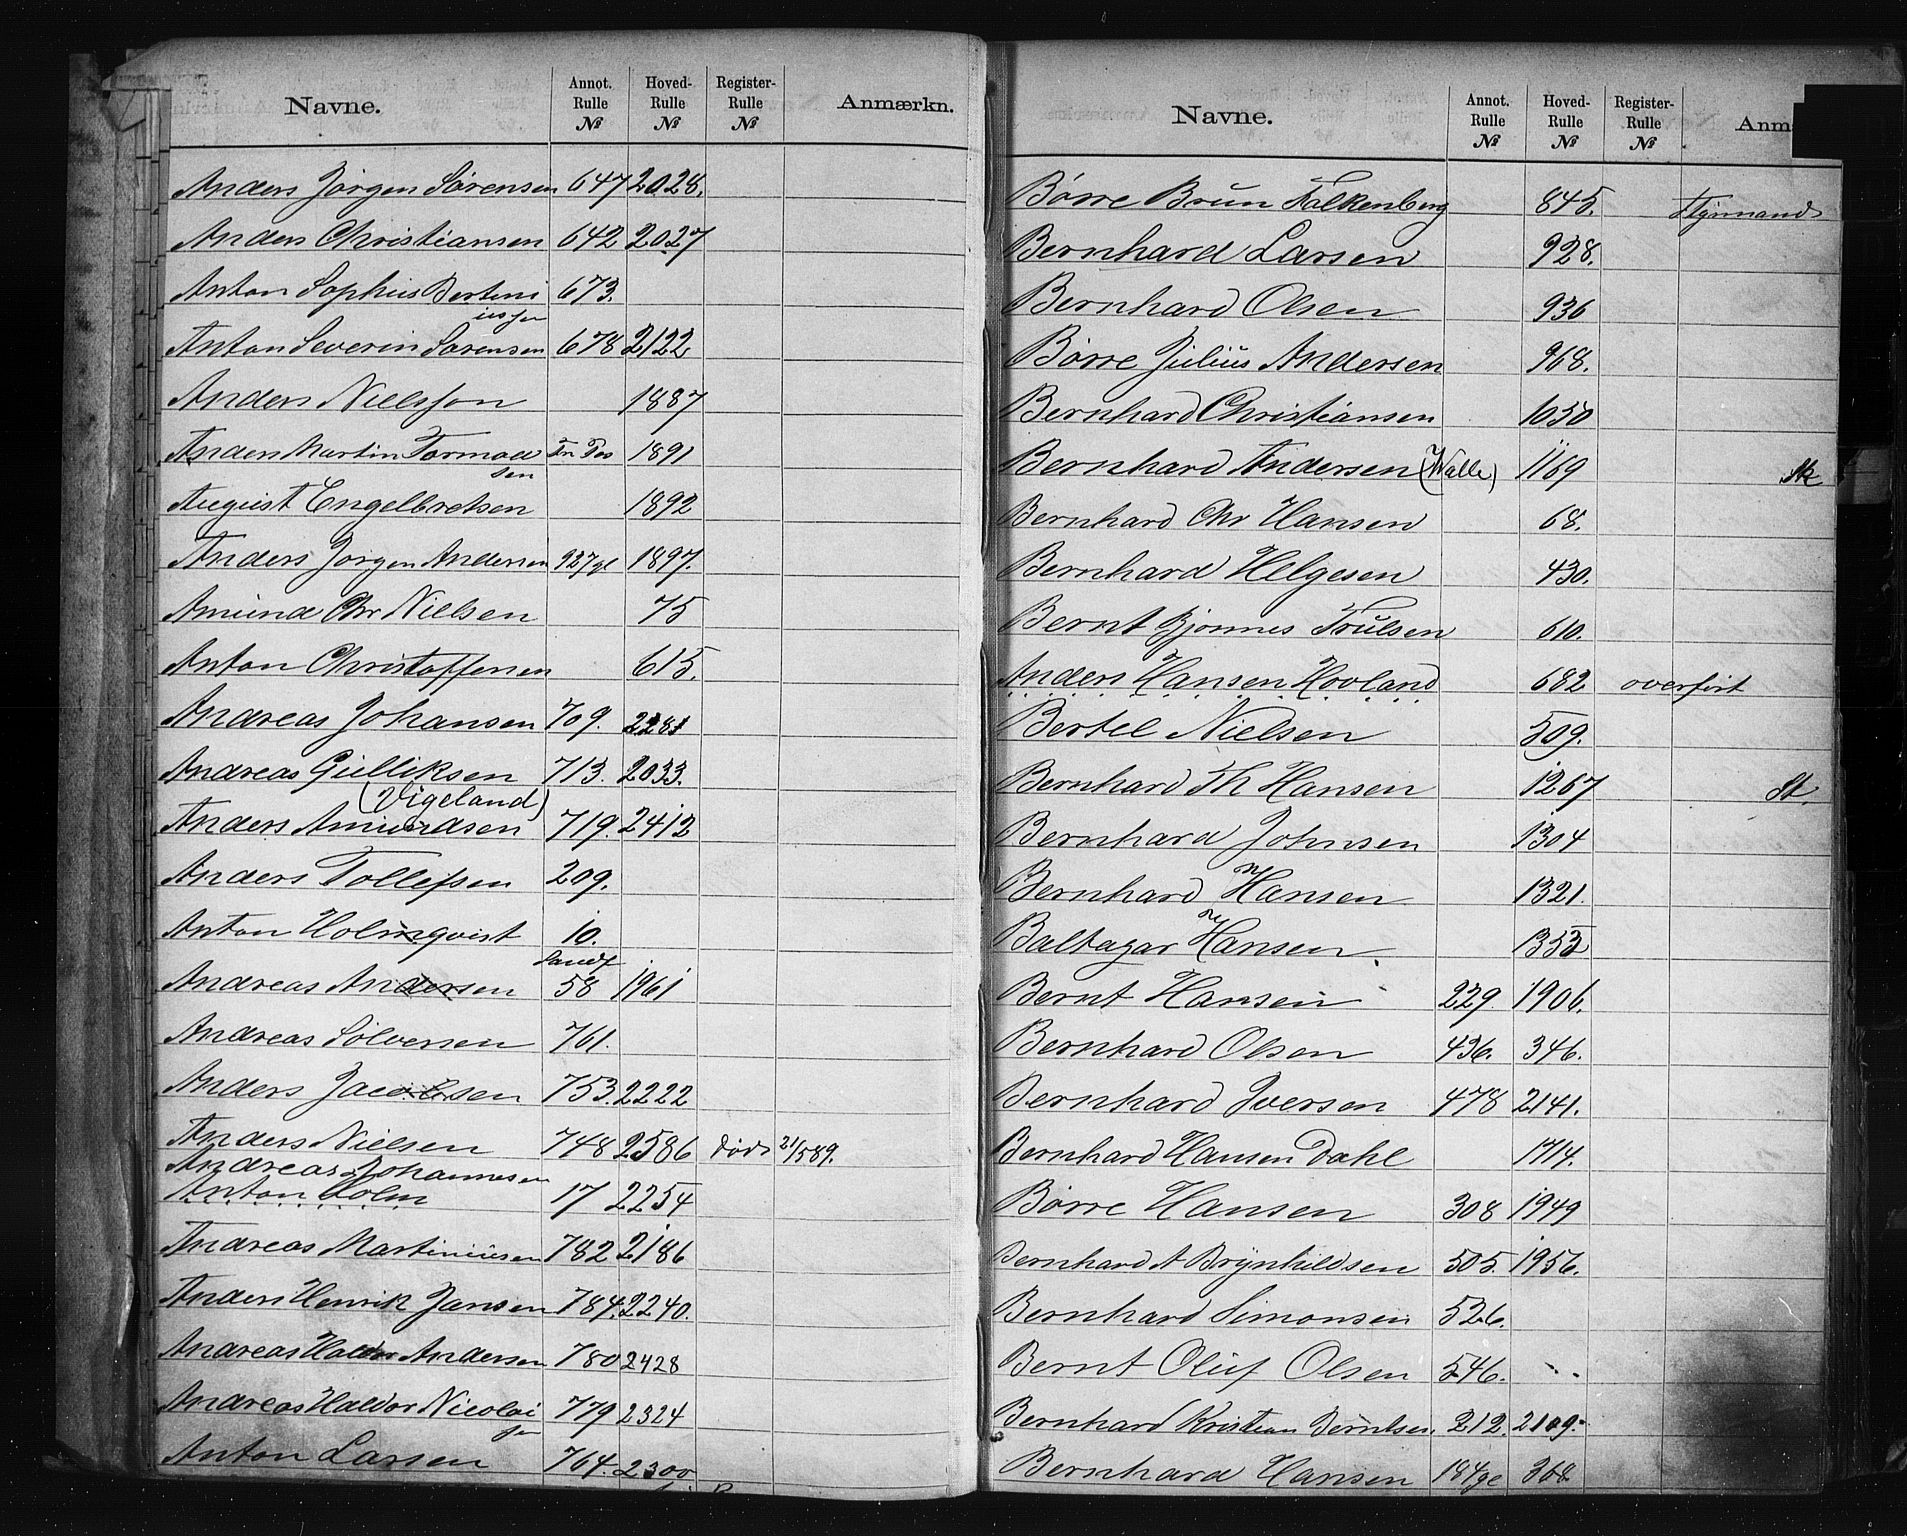 Navne. Annot. Rulle № Hoved- Rulle № Register- Rulle № Anmærkn.
Anders Jørgen Sørensen 647 2028.
Anders Christiansen 642 2027
Anton Sophus Berteni
ussen 673.
Anton Severin Sørensen 678 2122
Anders Nielsson 1887
Anders Martin Tormod
sen 1891
August Engelbretsen 1892
Anders Jørgen Andersen 927 gl 1897.
Amund Chr Nielsen 75
Anton Christoffersen 615.
Andreas Johansen 709. 2281
Andreas Gulliksen 713. 2033.
(Vigeland)
Anders Amundsen 719. 2412
Anders Tollefsen 209.
Anton Holmqvist 10.
Sandf
Andreas Andersen 58 1961
Andreas Sølversen 761.
Anders Jacobsen 753. 2222
Anders Nielsen 748 2586 død 21/5 89.
Andreas Johannesen
Anton Holm 17 2254
Andreas Martiniusen 782 2186
Anders Henrik Jansen 784. 2240.
Andreas Haldor Andersen 780 2428
Andreas Haldor Nicolai
sen 779 2324
Anton Larsen 764. 2300
Navne. Annot. Rulle № Hoved- Rulle № Register- Rulle № Anm
Børre Brun Falkenberg 845. Styrmand
Bernhard Larsen 928.
Bernhard Olsen 936
Børre Julius Andersen 968.
Bernhard Christiansen 1050
Bernhard Andersen (Walle) 1169 Sk
Bernhard Chr Hansen 68.
Bernhard Helgesen 430.
Bernt Bjønnes Trulsen 610.
Anders Hansen Hovland 682 overført
Bertel Nielsen 509.
Bernhard Th Hansen 1267 St.
Bernhard Johnsen 1304
Bernhard Hansen 1321.
Baltazar Hansen 1353
Bernt Hansen 229 1906.
Bernhard Olsen 436. 346.
Bernhard Iversen 478 2141.
Bernhard Hansen Dahl 1714.
Børre Hansen 308 1949
Bernhard A Brynhildsen 505. 1956.
Bernhard Simonsen 526.
Bernt Oluf Olsen 546.
Bernhard Kristian Berntsen. 212. 2109.
Bernhard Hansen 184 gl 368